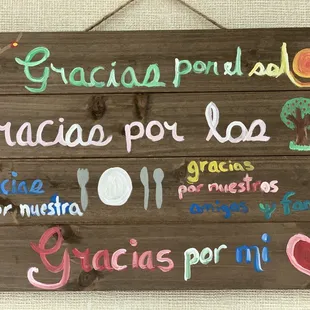 Gracias por el sol
racias por los
cias
or nuestra
gracias
por nuestros
amigos y fam
Gracias por mi